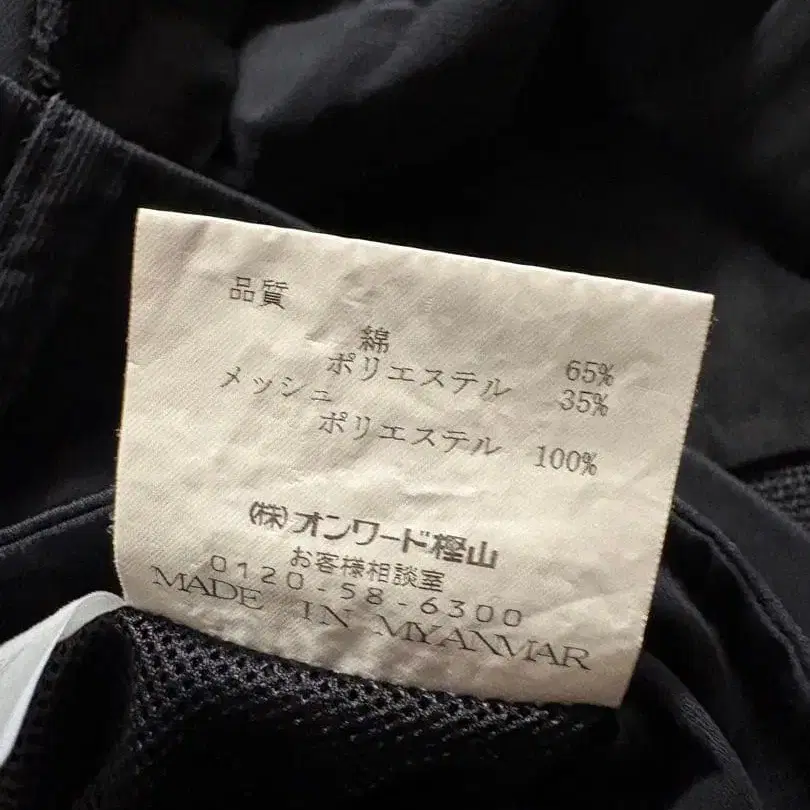 品質
綿 65%
ポリエステル 35%
メッシュ
ポリエステル 100%
(株)オンワード樫山
お客様相談室
0120-58-6300
MADE IN MYANMAR